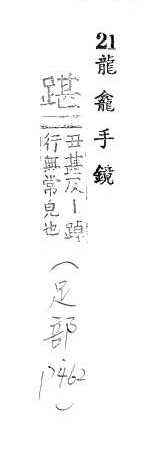 21龍龕手鏡
踸
丑甚反丨踔
行無常皃也
（足部
p462）